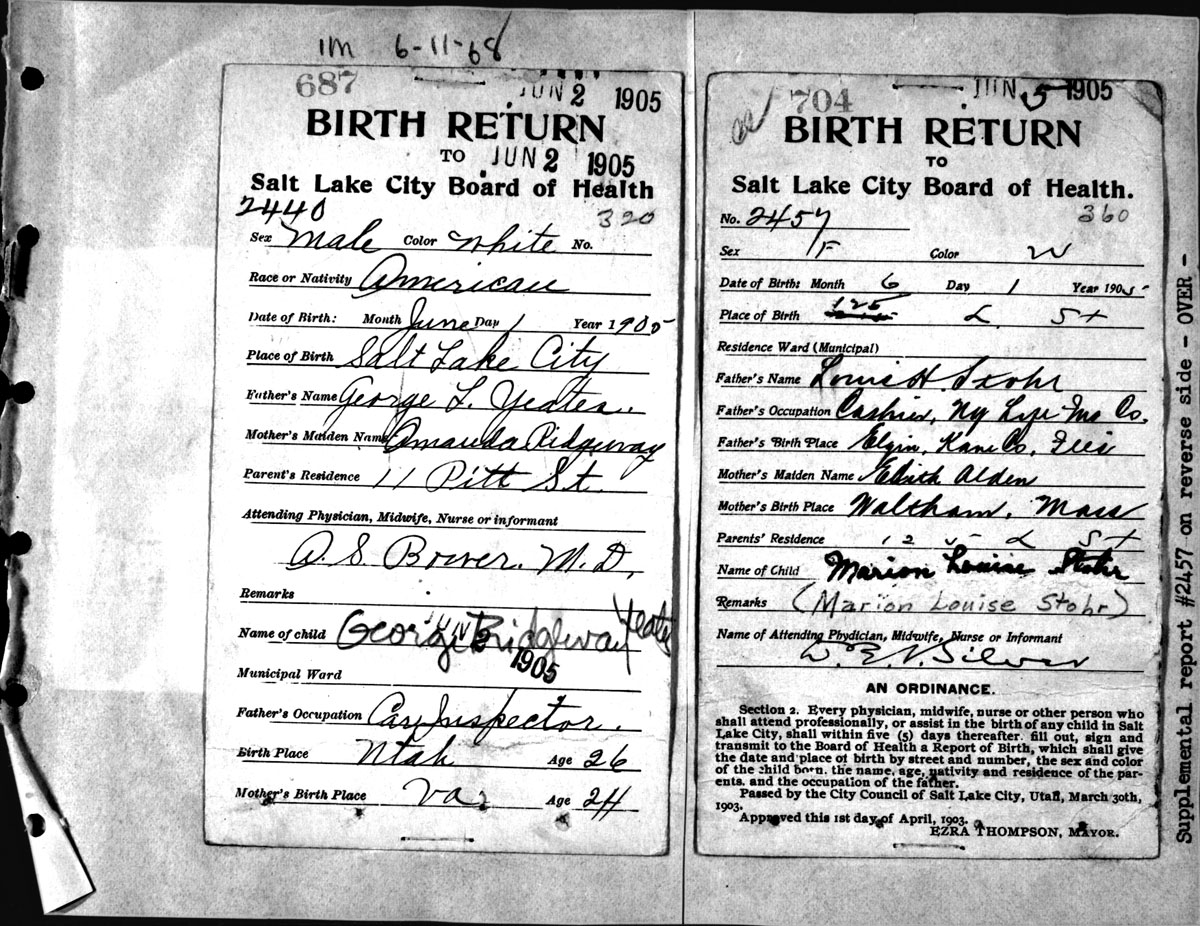 1M 6-11-68
687
JUN 2 1905
BIRTH RETURN
TO JUN 2 1905
Salt Lake City Board of Health
2440 320
Sex Male Color White No.
Race or Nativity American
Date of Birth: Month June Day 1 Year 1905
Place of Birth Salt Lake City
Father's Name George L. Yeates.
Mother's Maiden Name Amanda Ridgeway
Parent's Residence 11 Pitt St.
Attending Physician, Midwife, Nurse or informant
A. S. Bower. M.D.
Remarks
Name of child George Ridgeway Yeates
1905
Municipal Ward
Father's Occupation Car Inspector.
Birth Place Utah Age 26
Mother's Birth Place Va. Age 24
704
JUN 5 1905
BIRTH RETURN
TO
Salt Lake City Board of Health.
No. 2457 360
Sex F Color W
Date of Birth: Month 6 Day 1 Year 1905
Place of Birth 125 L St
Residence Ward (Municipal)
Father's Name Louis H. Stohr
Father's Occupation Cashier, NY Life Ins Co.
Father's Birth Place Elgin, Kane Co, Ills
Mother's Maiden Name Edith Alden
Mother's Birth Place Waltham, Mass
Parents' Residence 125 L St
Name of Child Marion Louise Stohr
Remarks (Marion Louise Stohr)
Name of Attending Phydician, Midwife, Nurse or Informant
Silver
AN ORDINANCE.
Section 2. Every physician, midwife, nurse or other person who
shall attend professionally, or assist in the birth of any child in Salt
Lake City, shall within five (5) days thereafter. fill out, sign and
transmit to the Board of Health a Report of Birth, which shall give
the date and place of birth by street and number, the sex and color
of the child born, the name, age, nativity and residence of the par-
ents, and the occupation of the father.
Passed by the City Council of Salt Lake City, Utah, March 30th,
1903.
Approved this 1st day of April, 1903.
EZRA THOMPSON, MAYOR.
Supplemental report #2457 on reverse side - OVER -